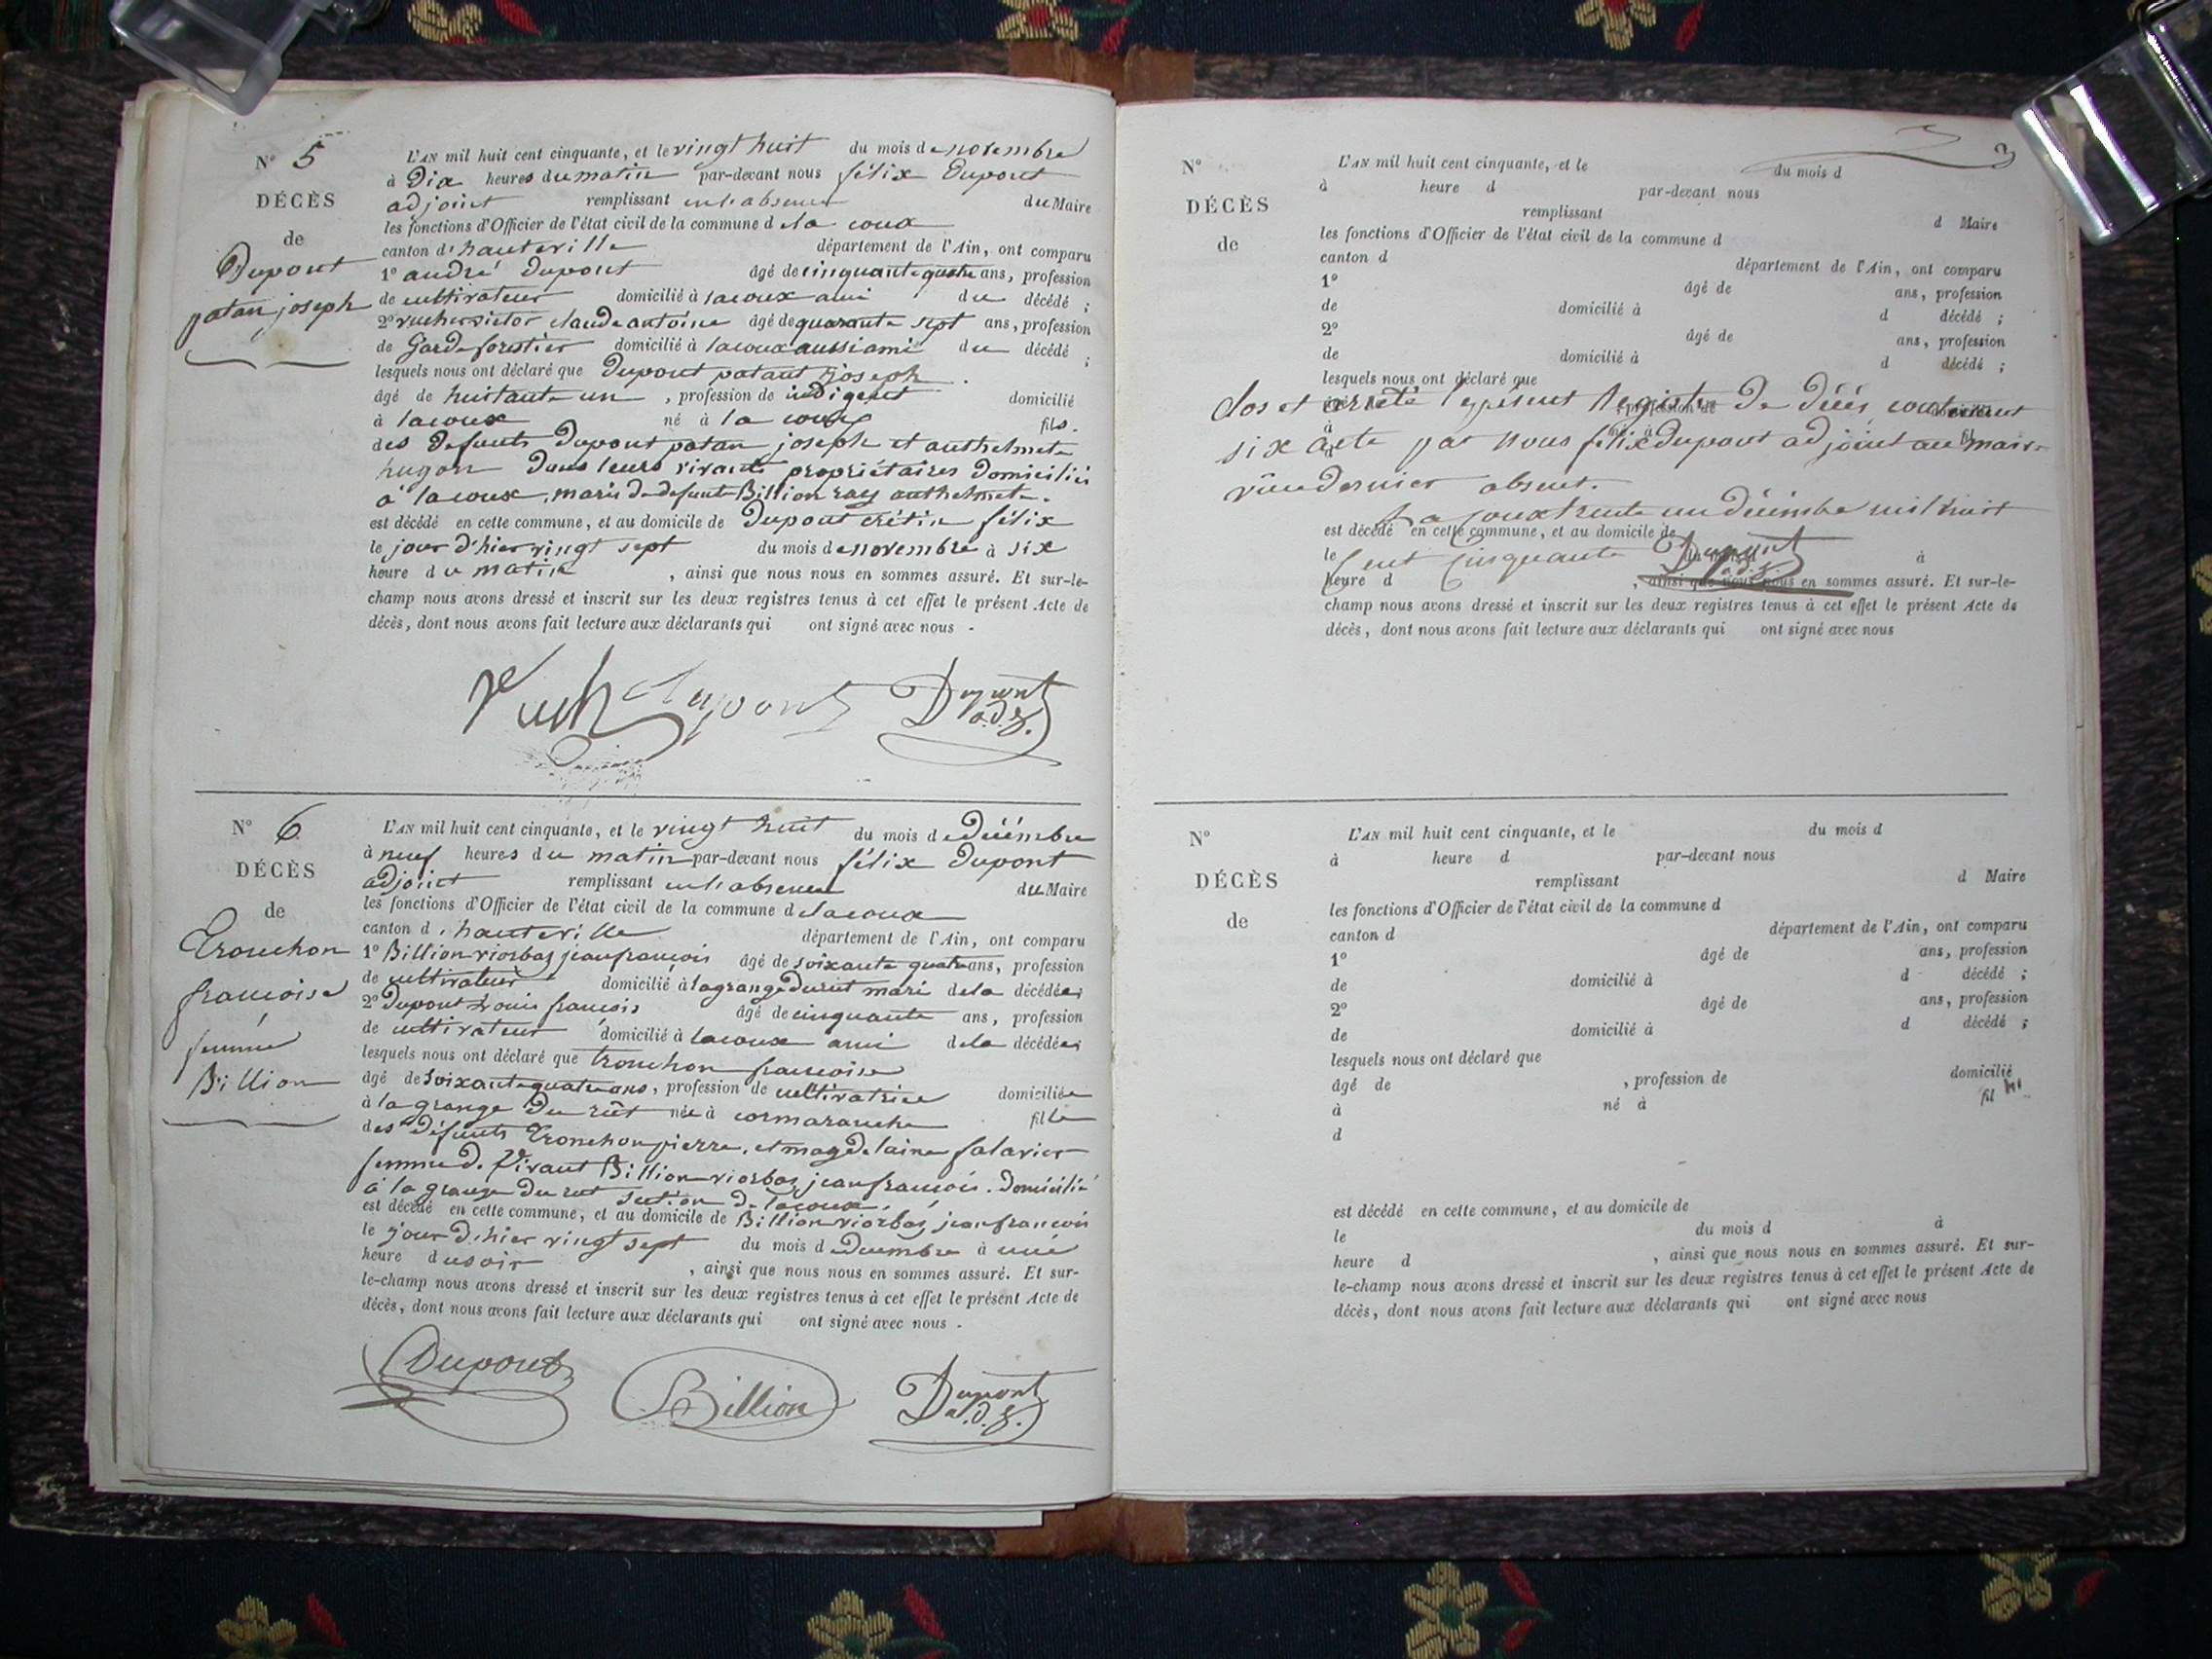 N° 5
DÉCÈS
de
Dupont
patan joseph
L'AN mil huit cent cinquante, et le vingt huit du mois de novembre
à Dix heures du matin par-devant nous félix Dupont
adjoint remplissant en l'absence du Maire
les fonctions d'Officier de l'état civil de la commune de la coux
canton d'hauteville département de l'Ain, ont comparu
1° andré dupont âgé de cinquante quatre ans, profession
de cultivateur domicilié à lacoux ami du décédé ;
2° claude antoine âgé de quarante sept ans, profession
de Garde forestier domicilié à lacoux aussi ami du décédé ;
lesquels nous ont déclaré que Dupont patant joseph
âgé de huitante un , profession de indigent domicilié
à lacoux né à la coux fils
des defunts Dupont patan joseph et anthelmete
hugon Dans leurs vivants propriétaires Domiciliés
à lacoux, marié De defunte Billion ray anthelmete.
est décédé en cette commune, et au domicile de Dupont crétin félix
le jour d'hier vingt sept du mois de novembre à six
heure du matin , ainsi que nous nous en sommes assuré. Et sur-le-
champ nous avons dressé et inscrit sur les deux registres tenus à cet effet le présent Acte de
décès, dont nous avons fait lecture aux déclarants qui ont signé avec nous -
Dupont Dupont
adj.
N° 6
DÉCÈS
de
Tronchon
francoise
femme
Billion
L'AN mil huit cent cinquante, et le vingt huit du mois de Décémbre
à neuf heures du matin par-devant nous félix Dupont
adjoint remplissant en l'absence du Maire
les fonctions d'Officier de l'état civil de la commune de lacoux
canton d'hauteville département de l'Ain, ont comparu
1° Billion viorbas jean françois âgé de soixante quatre ans, profession
de cultivateur domicilié à la grange du rut mari de la décédée ;
2° Dupont Louis francois âgé de cinquante ans, profession
de cultivateur domicilié à lacoux ami de la décédée ;
lesquels nous ont déclaré que tronchon francoise
âgé de soixante quatre ans, profession de cultivatrice domiciliée
à la grange Du rût née à cormaranche fille
des défunts Tronchon pierre, et magdelaine salavier
femme de vivant Billion viorbas jean francois. Domicilié
à la grange du rut section de lacoux.
est décédé en cette commune, et au domicile de Billion viorbas, jean francois
le jour d'hier vingt sept du mois de Decembre à une
heure du soir , ainsi que nous nous en sommes assuré. Et sur-
le-champ nous avons dressé et inscrit sur les deux registres tenus à cet effet le présent Acte de
décès, dont nous avons fait lecture aux déclarants qui ont signé avec nous -
Dupont Billion Dupont
adj.
N°
DÉCÈS
de
L'AN mil huit cent cinquante, et le du mois d
à heure d par-devant nous
remplissant d Maire
les fonctions d'Officier de l'état civil de la commune d
canton d département de l'Ain, ont comparu
1° âgé de ans, profession
de domicilié à d décédé ;
2° âgé de ans, profession
de domicilié à d décédé ;
lesquels nous ont déclaré que
Clos et arrêté le présent Registre De Décés contenant
six acte par nous félix dupont adjoint au maire
absent.
La coux trente un décémbre mil huit
est décédé en cette commune, et au domicile de
le cent cinquante Dupont à
adj.
heure d , ainsi que nous nous en sommes assuré. Et sur-le-
champ nous avons dressé et inscrit sur les deux registres tenus à cet effet le présent Acte de
décès, dont nous avons fait lecture aux déclarants qui ont signé avec nous
N°
DÉCÈS
de
L'AN mil huit cent cinquante, et le du mois d
à heure d par-devant nous
remplissant d Maire
les fonctions d'Officier de l'état civil de la commune d
canton d département de l'Ain, ont comparu
1° âgé de ans, profession
de domicilié à d décédé ;
2° âgé de ans, profession
de domicilié à d décédé ;
lesquels nous ont déclaré que
âgé de , profession de domicilié
à né à fil
d
est décédé en cette commune, et au domicile de
le du mois d à
heure d , ainsi que nous nous en sommes assuré. Et sur-
le-champ nous avons dressé et inscrit sur les deux registres tenus à cet effet le présent Acte de
décès, dont nous avons fait lecture aux déclarants qui ont signé avec nous